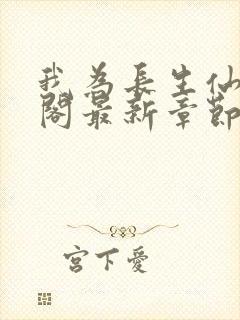 我為長生仙
閣最新章節
宮下愛